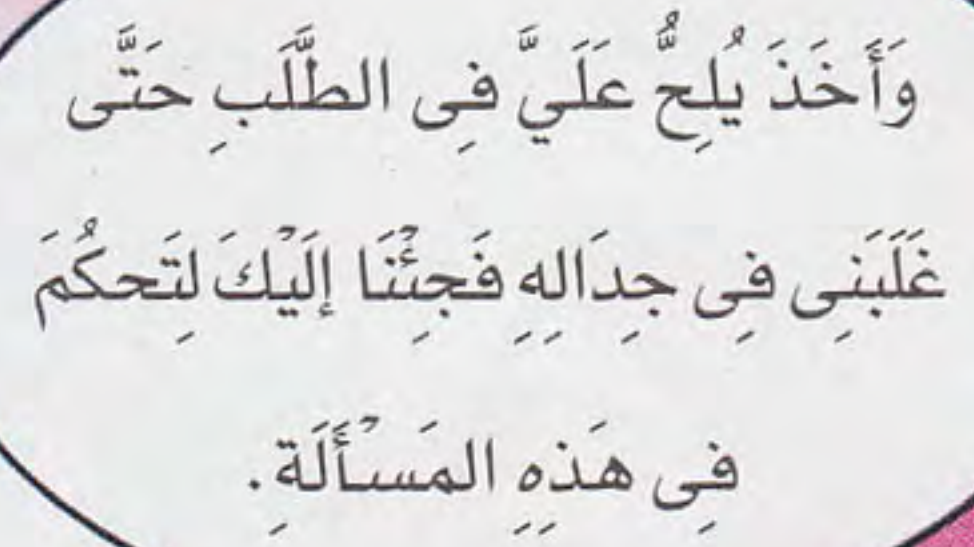 وَأَخَذَ يُلِحُّ عَلَيَّ فِى الطَّلَبِ حَتَّى
غَلَبَنِى فِى جِدَالِهِ فَجِئْنَا إلَيْكَ لِتَحكُمَ
فِى هَذِهِ المَسْأَلَةِ.